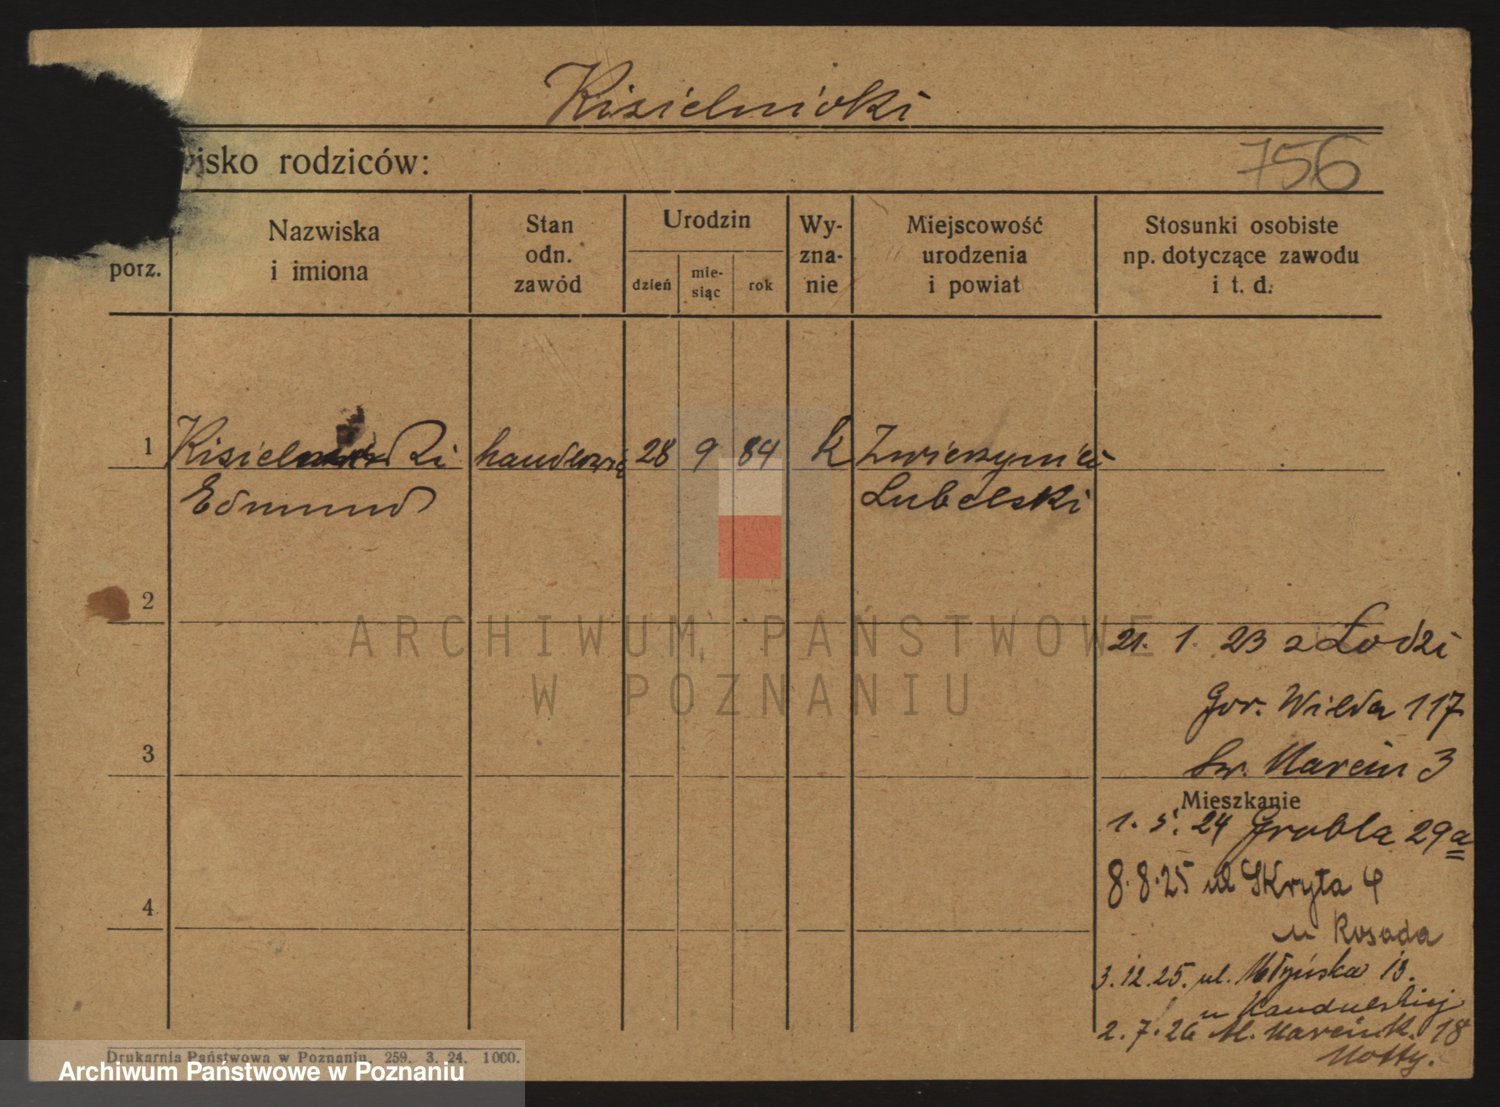 Kisielnicki
isko rodziców:
756
porz.
Nazwiska
i imiona
Stan
odn.
zawód
Urodzin
dzień
mie-
siąc
rok
Wy-
zna-
nie
Miejscowość
urodzenia
i powiat
Stosunki osobiste
np. dotyczące zawodu
i t. d.
1 Kisielnicki 28 9 84 k Zwierzyniec
Edmund Lubelski
2
ARCHIWUM PAŃSTWOWE
W POZNANIU
21. 1. 23 z Łodzi
Gór. Wilda 117
3
Św. Marcin 3
Mieszkanie
1. 5. 24 Grobla 29a
8.8.25 ul Skryta 4
4
u Rosada
3.12.25. ul. Młyńska 13.
u
2.7.26 M. Marcink. 18
Drukarnia Państwowa w Poznaniu, 259. 3. 24. 1000.
Archiwum Państwowe w Poznaniu